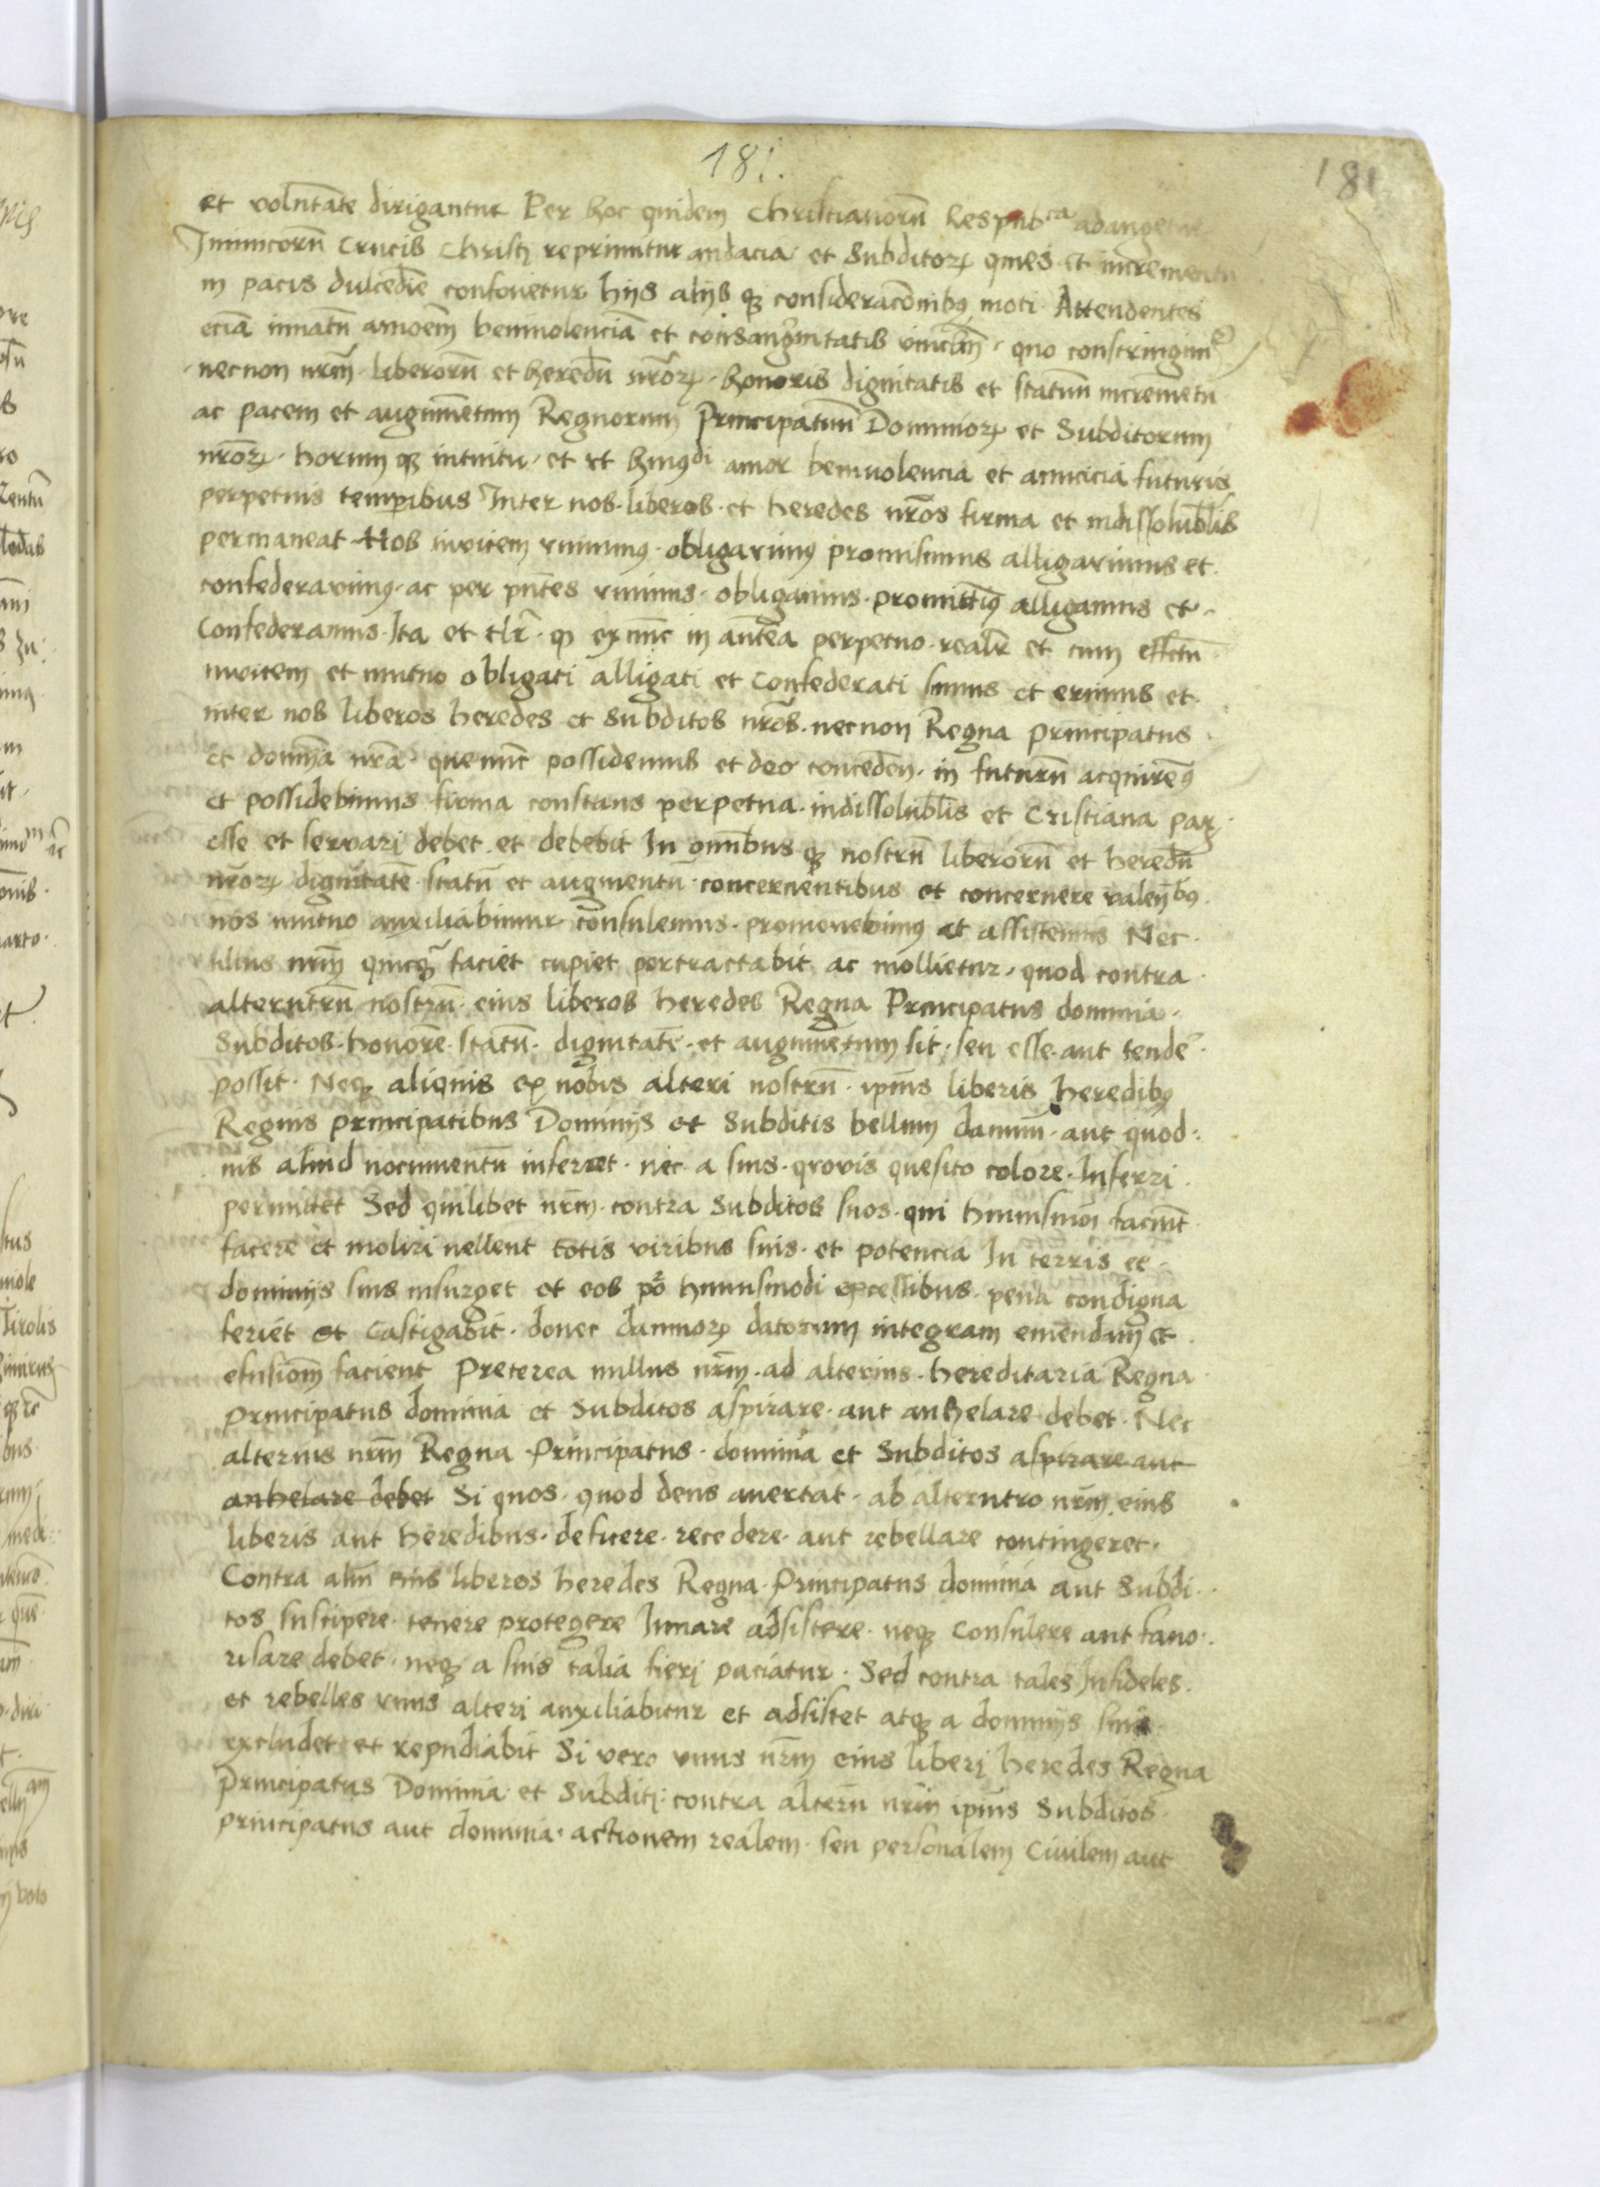 181.
181
et voluntate dirigantur Per hoc quidem Christianorũ Respubca adangetur
Inimicorũ Crucis Christi reprimitur audacia et Subditoꝝ quies et incrementũ
in pacis dulcedĩe confovetur hijs alijs qꝫ consideracõnibꝰ moti · Attendentes
eciã innatũ amoẽm benivolenciã et consangwĩtatis vinclm̃ · quo constringimur
necnon nrm̃ · liberorũ et heredũ nrõꝝ · honoris dignitatis et statuũ incremẽtũ
ac pacem et augumẽtum Regnorum Principatuũ Dominioꝝ et Subditorum
nrõꝝ · horum qꝫ intuitu · et vt hmꝰdi amor benivolencia et amicicia futuris
perpetuis temporibus Inter nos · liberos · et heredes nrõs firma et indissolubĩlis
permaneat Nos invicem vnimus · obligavimꝰ promisimus alligavimus et ·
confederavimꝰ · ac per pñtes vnimus · obligamus · promittimꝰ alligamus et ·
Confederamus · Ita et tlr̃ · qꝫ ex nũc in añtea perpetuo · realr̃ et cum effectu ·
invicem et mutuo obligati alligati et Confederati sumus et erimus et ·
inter nos liberos heredes et subditos nrõs · necnon Regna principatus ·
et domĩa nrã · que nũc possidemus et deo conceden̄ · in futurũ acquiremꝰ
et possidebimus firma constans perpetua · indissolubĩlis et Cristiana pax ·
esse et servari debet · et debebit In omĩbus qꝫ nostrũ liberorũ et heredũ
nrõꝝ dignitatẽ statũ et augmentũ · concernentibus et concernere valentibꝰ ·
nos mutuo auxiliabimur consulemus · promovebimꝰ et assistemus Nec ·
ullus nrm̃ quicqꝫ faciet cupiet pertractabit ac mollietur · quod contra ·
alterutrũ nostrũ · eius liberos heredes Regna Principatus dominia ·
Subditos · honorẽ · statũ · dignitatẽ · et augumẽtum sit · seu esse · aut tendẽ ·
possit · Neqꝫ aliquis ex nobis alteri nostrũ · ipĩus liberis heredibꝰ
Regnis principatibus Dominijs et Subditis bellum damnũ · aut quod ·
vis aliud nocumentũ inferret · nec a suis · qvovis quesito colore · Inferri ·
permittet Sed quilibet nrm̃ · contra Subditos suos · qui huiusmõi faciũt ·
facere et moliri vellent totis viribus suis · et potencia In terris et ·
dominijs suis insurget et eos põ huiusmodi excessibus · pena condigna
feriet et Castigabit · donec damnoꝝ datorum integram emendam et ·
efusioñm facient Preterea nullus nrm̃ · ad alterius · hereditaria Regna ·
principatus dominia et Subditos aspirare · aut anhelare debet · Nec
alterius nrm̃ Regna · Principatus · dominia et Subditos aspirare aut
anhelare debet Si quos · quod deus avertat · ab alterutro nrm̃ eius
liberis aut heredibus · deficere · recedere · aut rebellare contingeret ·
Contra aliũ eius liberos heredes Regna · Principatus dominia aut Subdi ·
tos suscipere · tenere protegere Iuvare adsistere · neqꝫ Consulere aut favo ·
risare debet · neqꝫ a suis talia fieri paciatur · Sed contra tales Infideles ·
et rebelles vnus alteri auxiliabitur et adsistet atqꝫ a dominijs suis ·
excludet et repudiabit Si vero vnus nrm̃ eius liberi heredes Regna
Principatus Dominia et Subditi contra alterũ nrm̃ ipĩus Subditos ·
principatus aut dominia · actionem realem · seu personalem Civilem aut